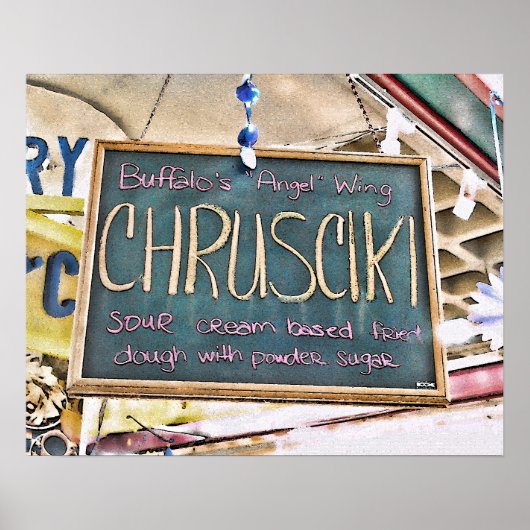 Buffalo's "Angel" Wing
CHRUSCIKI
SOUR cream based fried
dough with powder sugar
RY
C